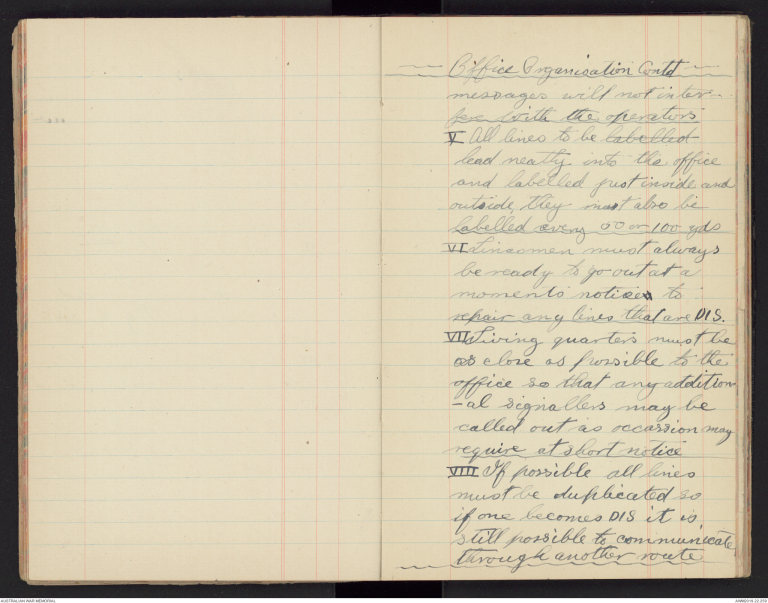 Office Organisation Contd
messages will not inter-
fere with the operators
V All lines to be labelled
lead neatly into the office
and labelled just inside and
outside, they must also be
labelled every 50 or 100 yds
VI Linesmen must always
be ready to go out at a
moments notice to
repair any lines that are DIS.
VII Living quarters must be
as close as possible to the
office so that any addition
-al signallers may be
called out as occassion may
require at short notice
VIII If possible all lines
must be duplicated so
if one becomes DIS it is
still possible to communicate
through another route
AUSTRALIAN WAR MEMORIAL